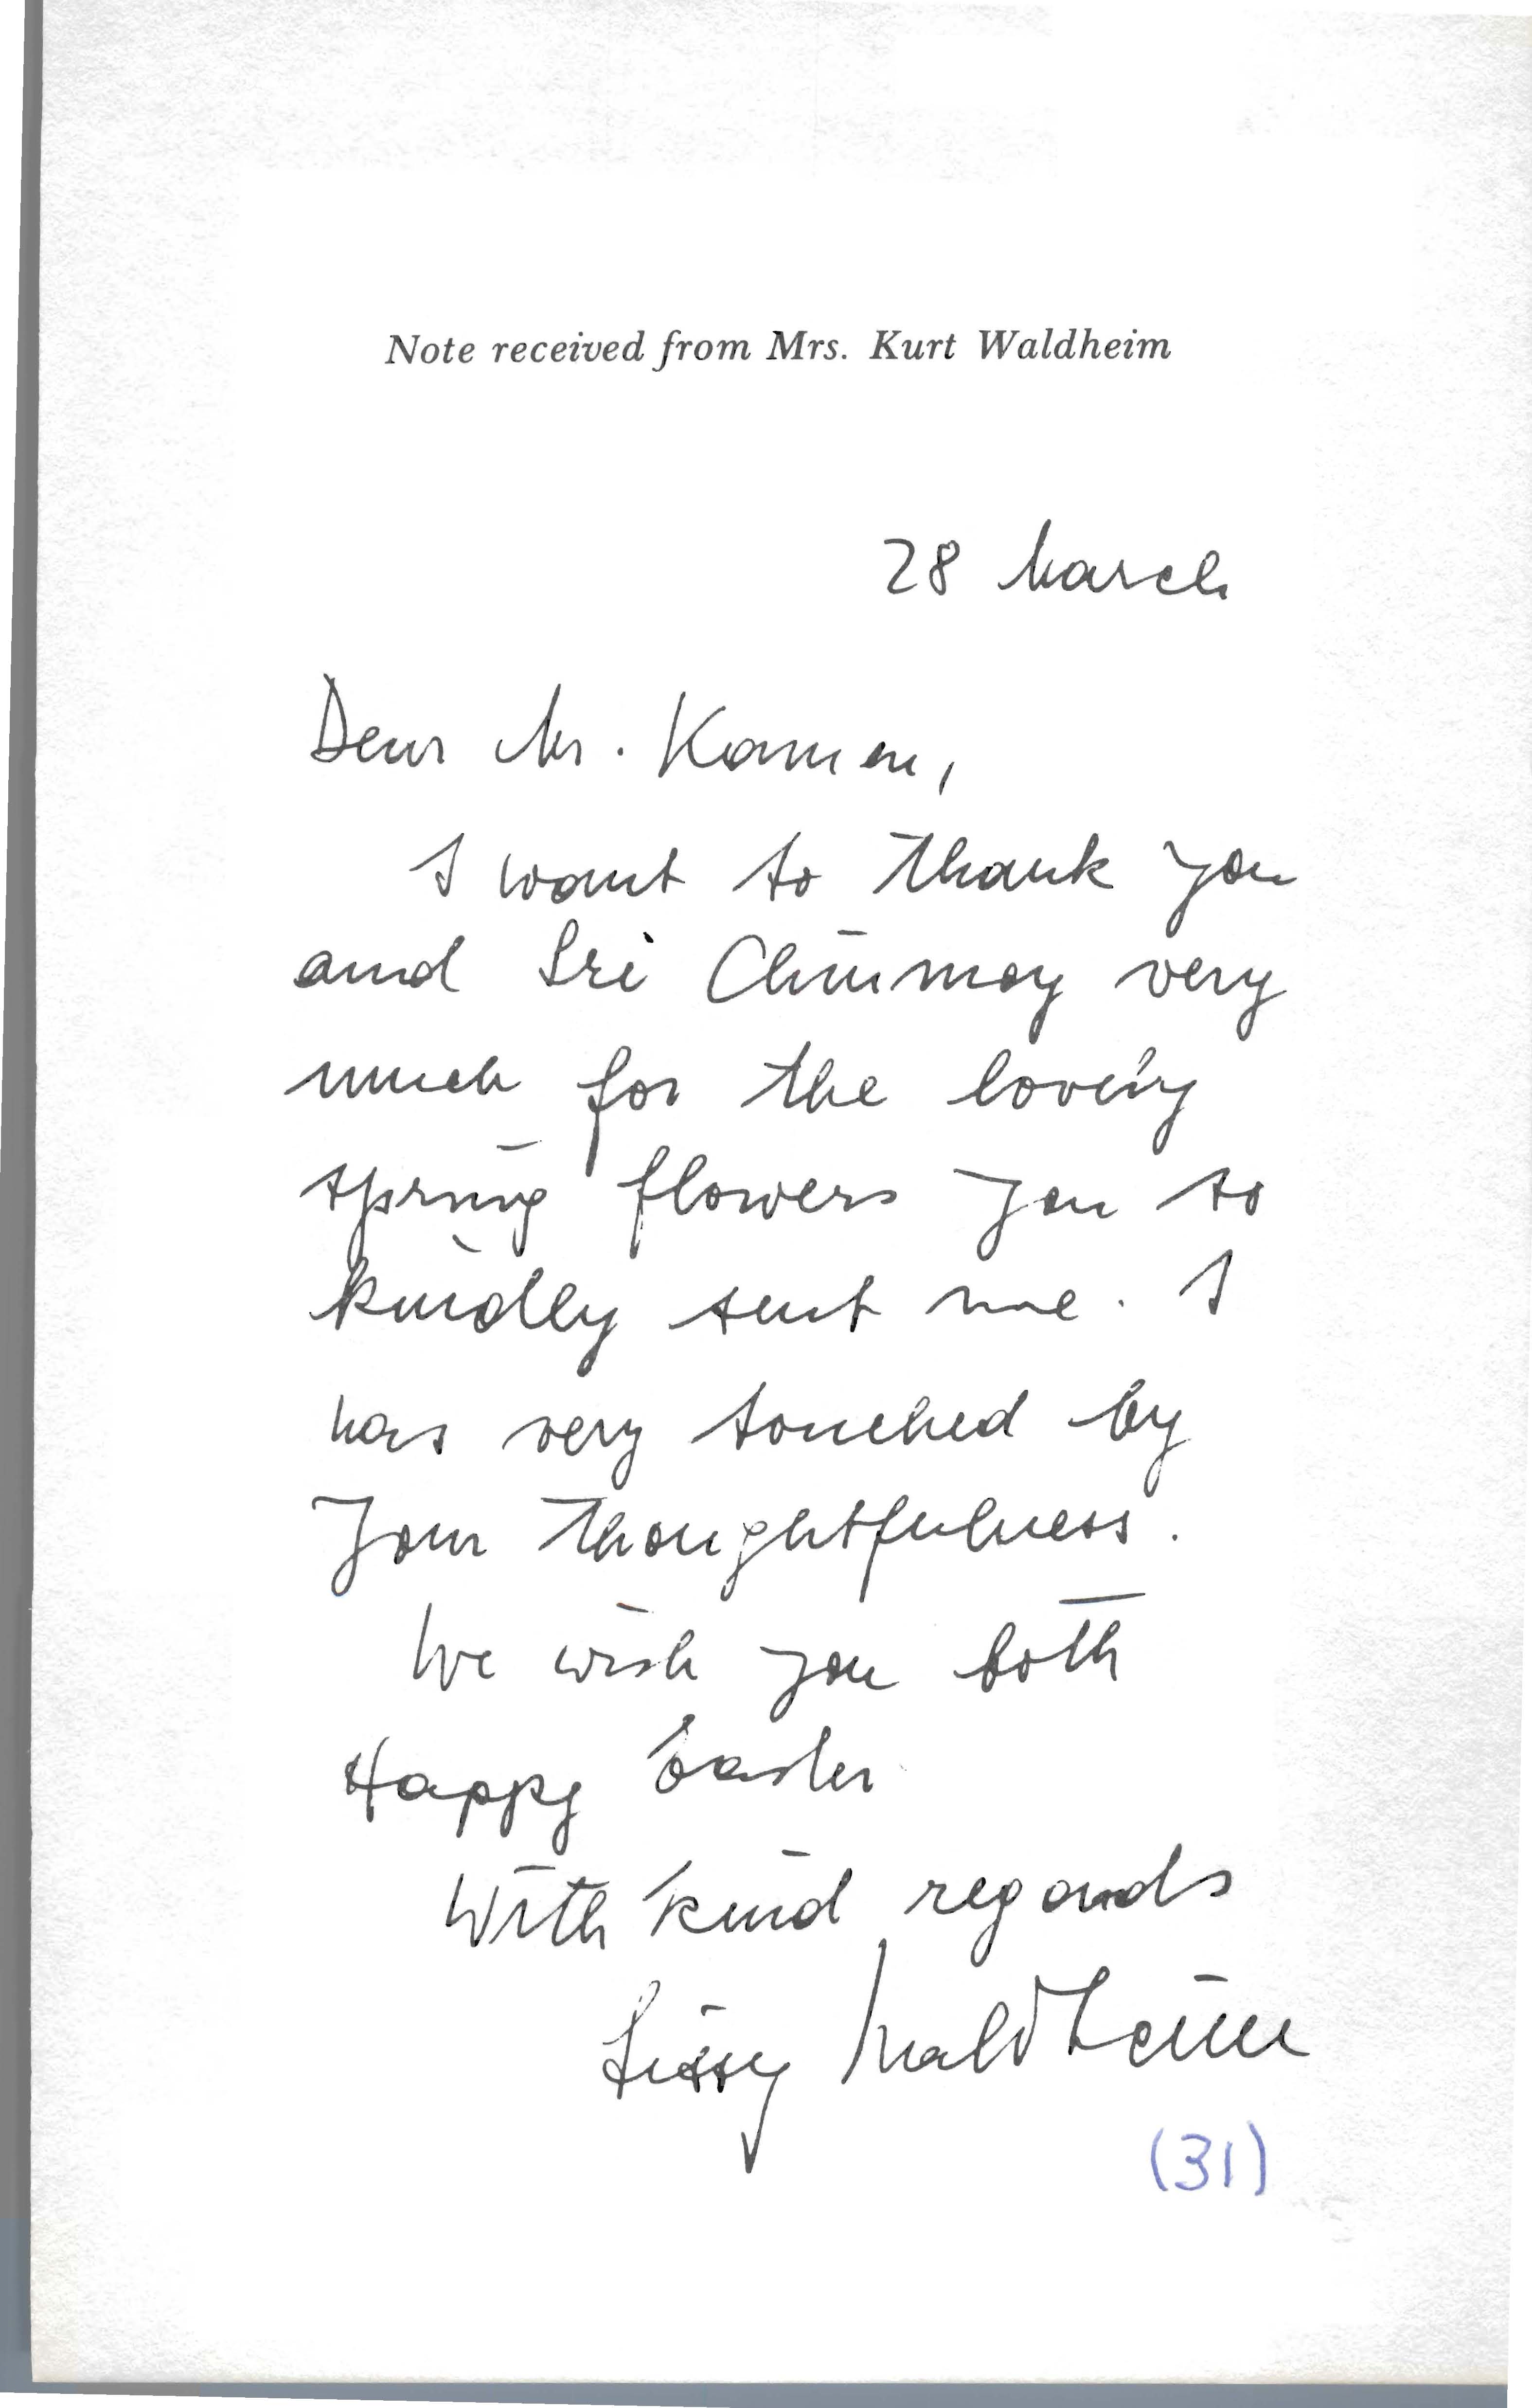 Note received from Mrs. Kurt Waldheim
28 March
Dear Mr. Kamen,
I want to thank you
and Sri Chinmoy very
much for the lovely
spring flowers you so
kindly sent me. I
was very touched by
your thoughtfulness.
We wish you both
Happy Easter
With kind regards
Lissy Waldheim
(31)